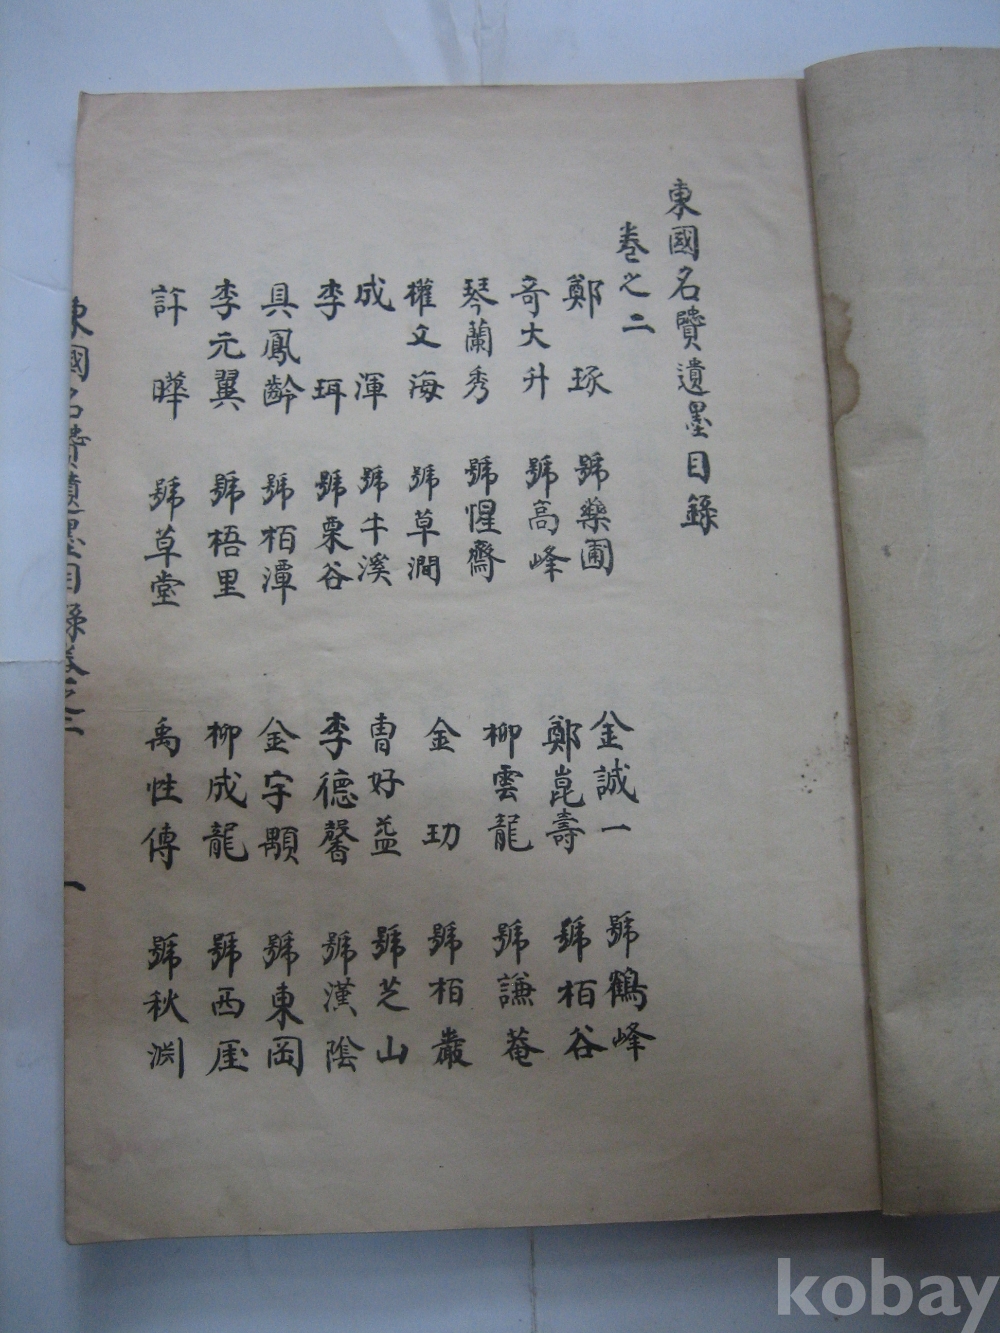 東國名賢遺墨目錄
卷之二
鄭琢 號藥圃 金誠一 號鶴峰
奇大升 號高峰 鄭崑壽 號栢谷
琴蘭秀 號惺齋 柳雲龍 號謙菴
權文海 號草澗 金功 號栢巖
成渾 號牛溪 曺好益 號芝山
李珥 號栗谷 李德馨 號漢陰
具鳳齡 號栢潭 金宇顒 號東岡
李元翼 號梧里 柳成龍 號西厓
許曄 號草堂 禹性傳 號秋淵
東國名賢遺墨目錄卷之二 一
kobay